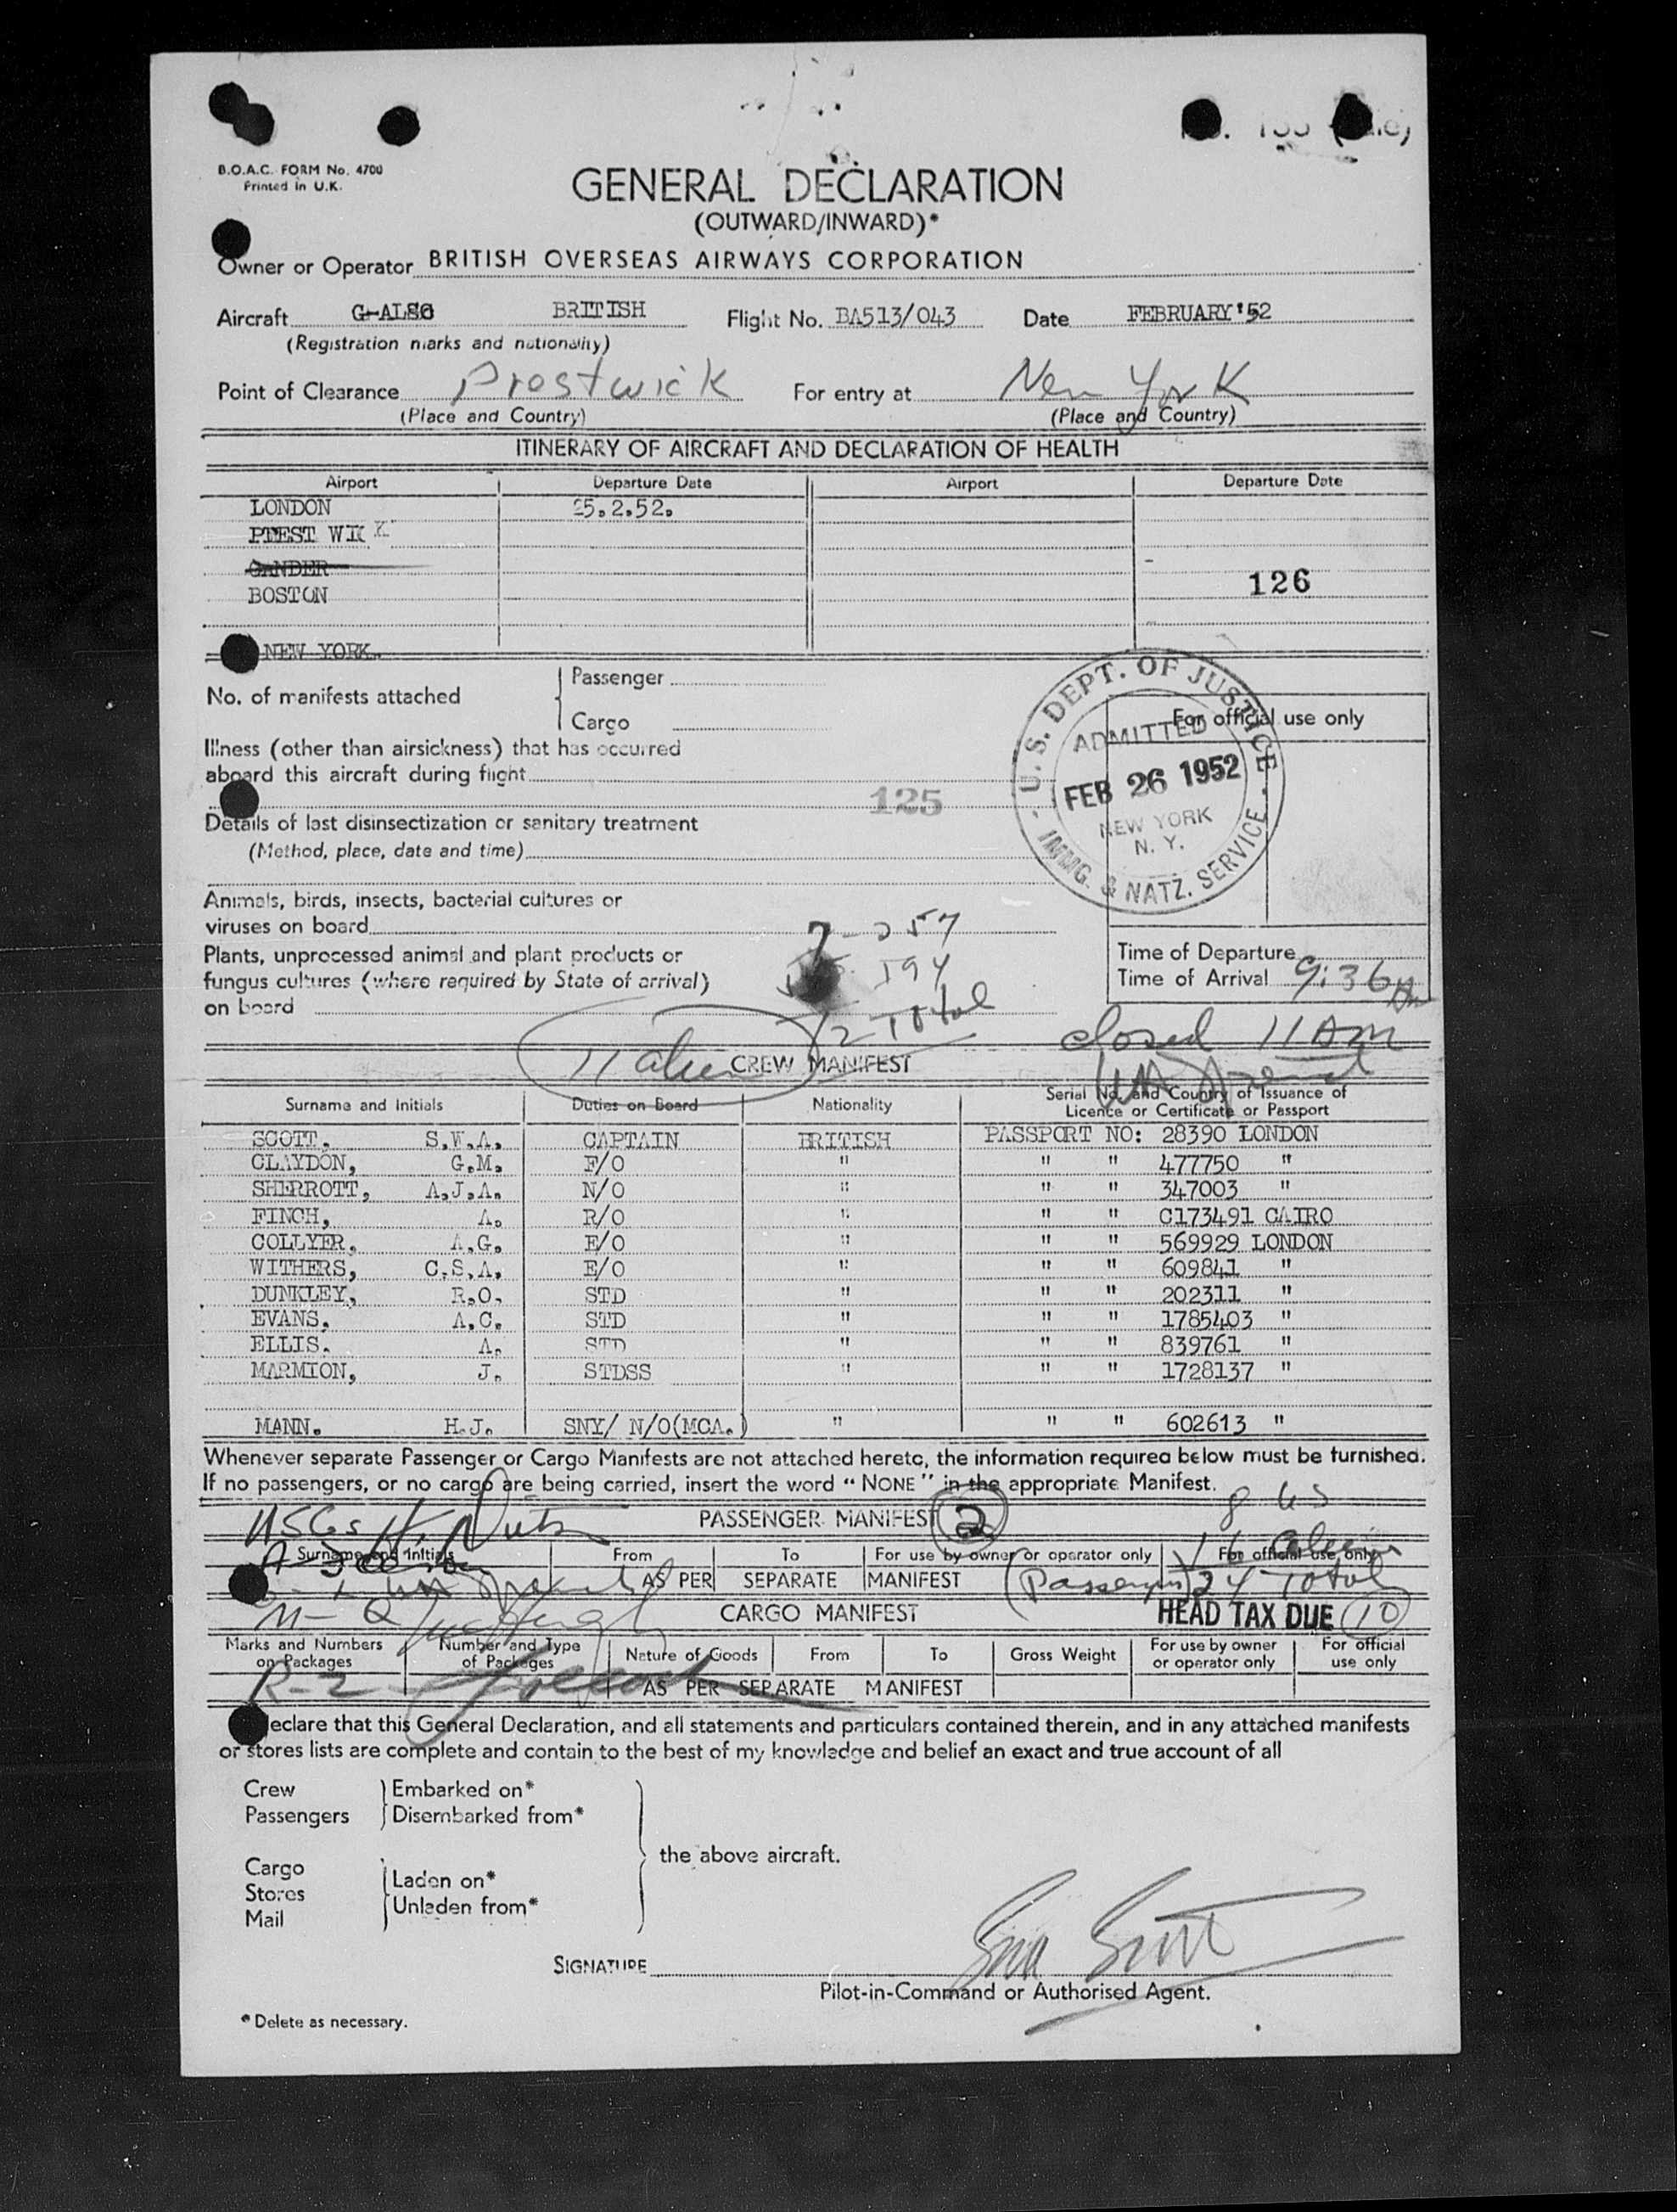 B.O.A.C. FORM No. 4700
Printed in U.K.
GENERAL DECLARATION
(OUTWARD/INWARD)*
Owner or Operator BRITISH OVERSEAS AIRWAYS CORPORATION
Aircraft BRITISH Flight No. BA513/043 Date FEBRUARY '52
(Registration marks and nationality)
Point of Clearance Prestwick For entry at New York
(Place and Country) (Place and Country)
ITINERARY OF AIRCRAFT AND DECLARATION OF HEALTH
Airport Departure Date Airport Departure Date
LONDON 25.2.52.
GANDER
BOSTON 126
NEW YORK.
No. of manifests attached Passenger
Cargo
For official use only
Illness (other than airsickness) that has occurred
aboard this aircraft during flight
125
Details of last disinsectization or sanitary treatment
(Method, place, date and time)
U.S. DEPT. OF JUSTICE - IMMG. & NATZ. SERVICE -
ADMITTED
FEB 26 1952
NEW YORK
N. Y.
Animals, birds, insects, bacterial cultures or
viruses on board
Plants, unprocessed animal and plant products or
fungus cultures (where required by State of arrival)
on board
Total
Time of Departure
Time of Arrival 9:36 Am
closed 11 AM
CREW MANIFEST
Surname and Initials Duties on Board Nationality Serial No. and Country of Issuance of
Licence or Certificate or Passport
SCOTT, S.W.A. CAPTAIN BRITISH PASSPORT NO: 28390 LONDON
CLAYDON, G.M. F/O " " " 477750 "
SHERROTT, A.J.A. N/O " " " 347003 "
FINCH, A. R/O " " " C173491 CAIRO
COLLYER, A.G. E/O " " " 569929 LONDON
WITHERS, C.S.A. E/O " " " 609841 "
DUNKLEY, R.O. STD " " " 202311 "
EVANS, A.C. STD " " " 1785403 "
ELLIS. A. STD " " " 839761 "
MARMION, J. STDSS " " " 1728137 "
MANN. H.J. SNY/ N/O(MCA.) " " " 602613 "
Whenever separate Passenger or Cargo Manifests are not attached hereto, the information required below must be furnished.
If no passengers, or no cargo are being carried, insert the word "NONE" in the appropriate Manifest.
PASSENGER MANIFEST 2
Surname and Initials From To For use by owner or operator only For official use only
AS PER SEPARATE MANIFEST (Passengers) 24 Total
CARGO MANIFEST HEAD TAX DUE 10
Marks and Numbers on Packages Number and Type of Packages Nature of Goods From To Gross Weight For use by owner or operator only For official use only
R-2 AS PER SEPARATE MANIFEST
eclare that this General Declaration, and all statements and particulars contained therein, and in any attached manifests
or stores lists are complete and contain to the best of my knowledge and belief an exact and true account of all
Crew Embarked on*
Passengers Disembarked from*
the above aircraft.
Cargo Laden on*
Stores Unladen from*
Mail
SIGNATURE
Pilot-in-Command or Authorised Agent.
* Delete as necessary.